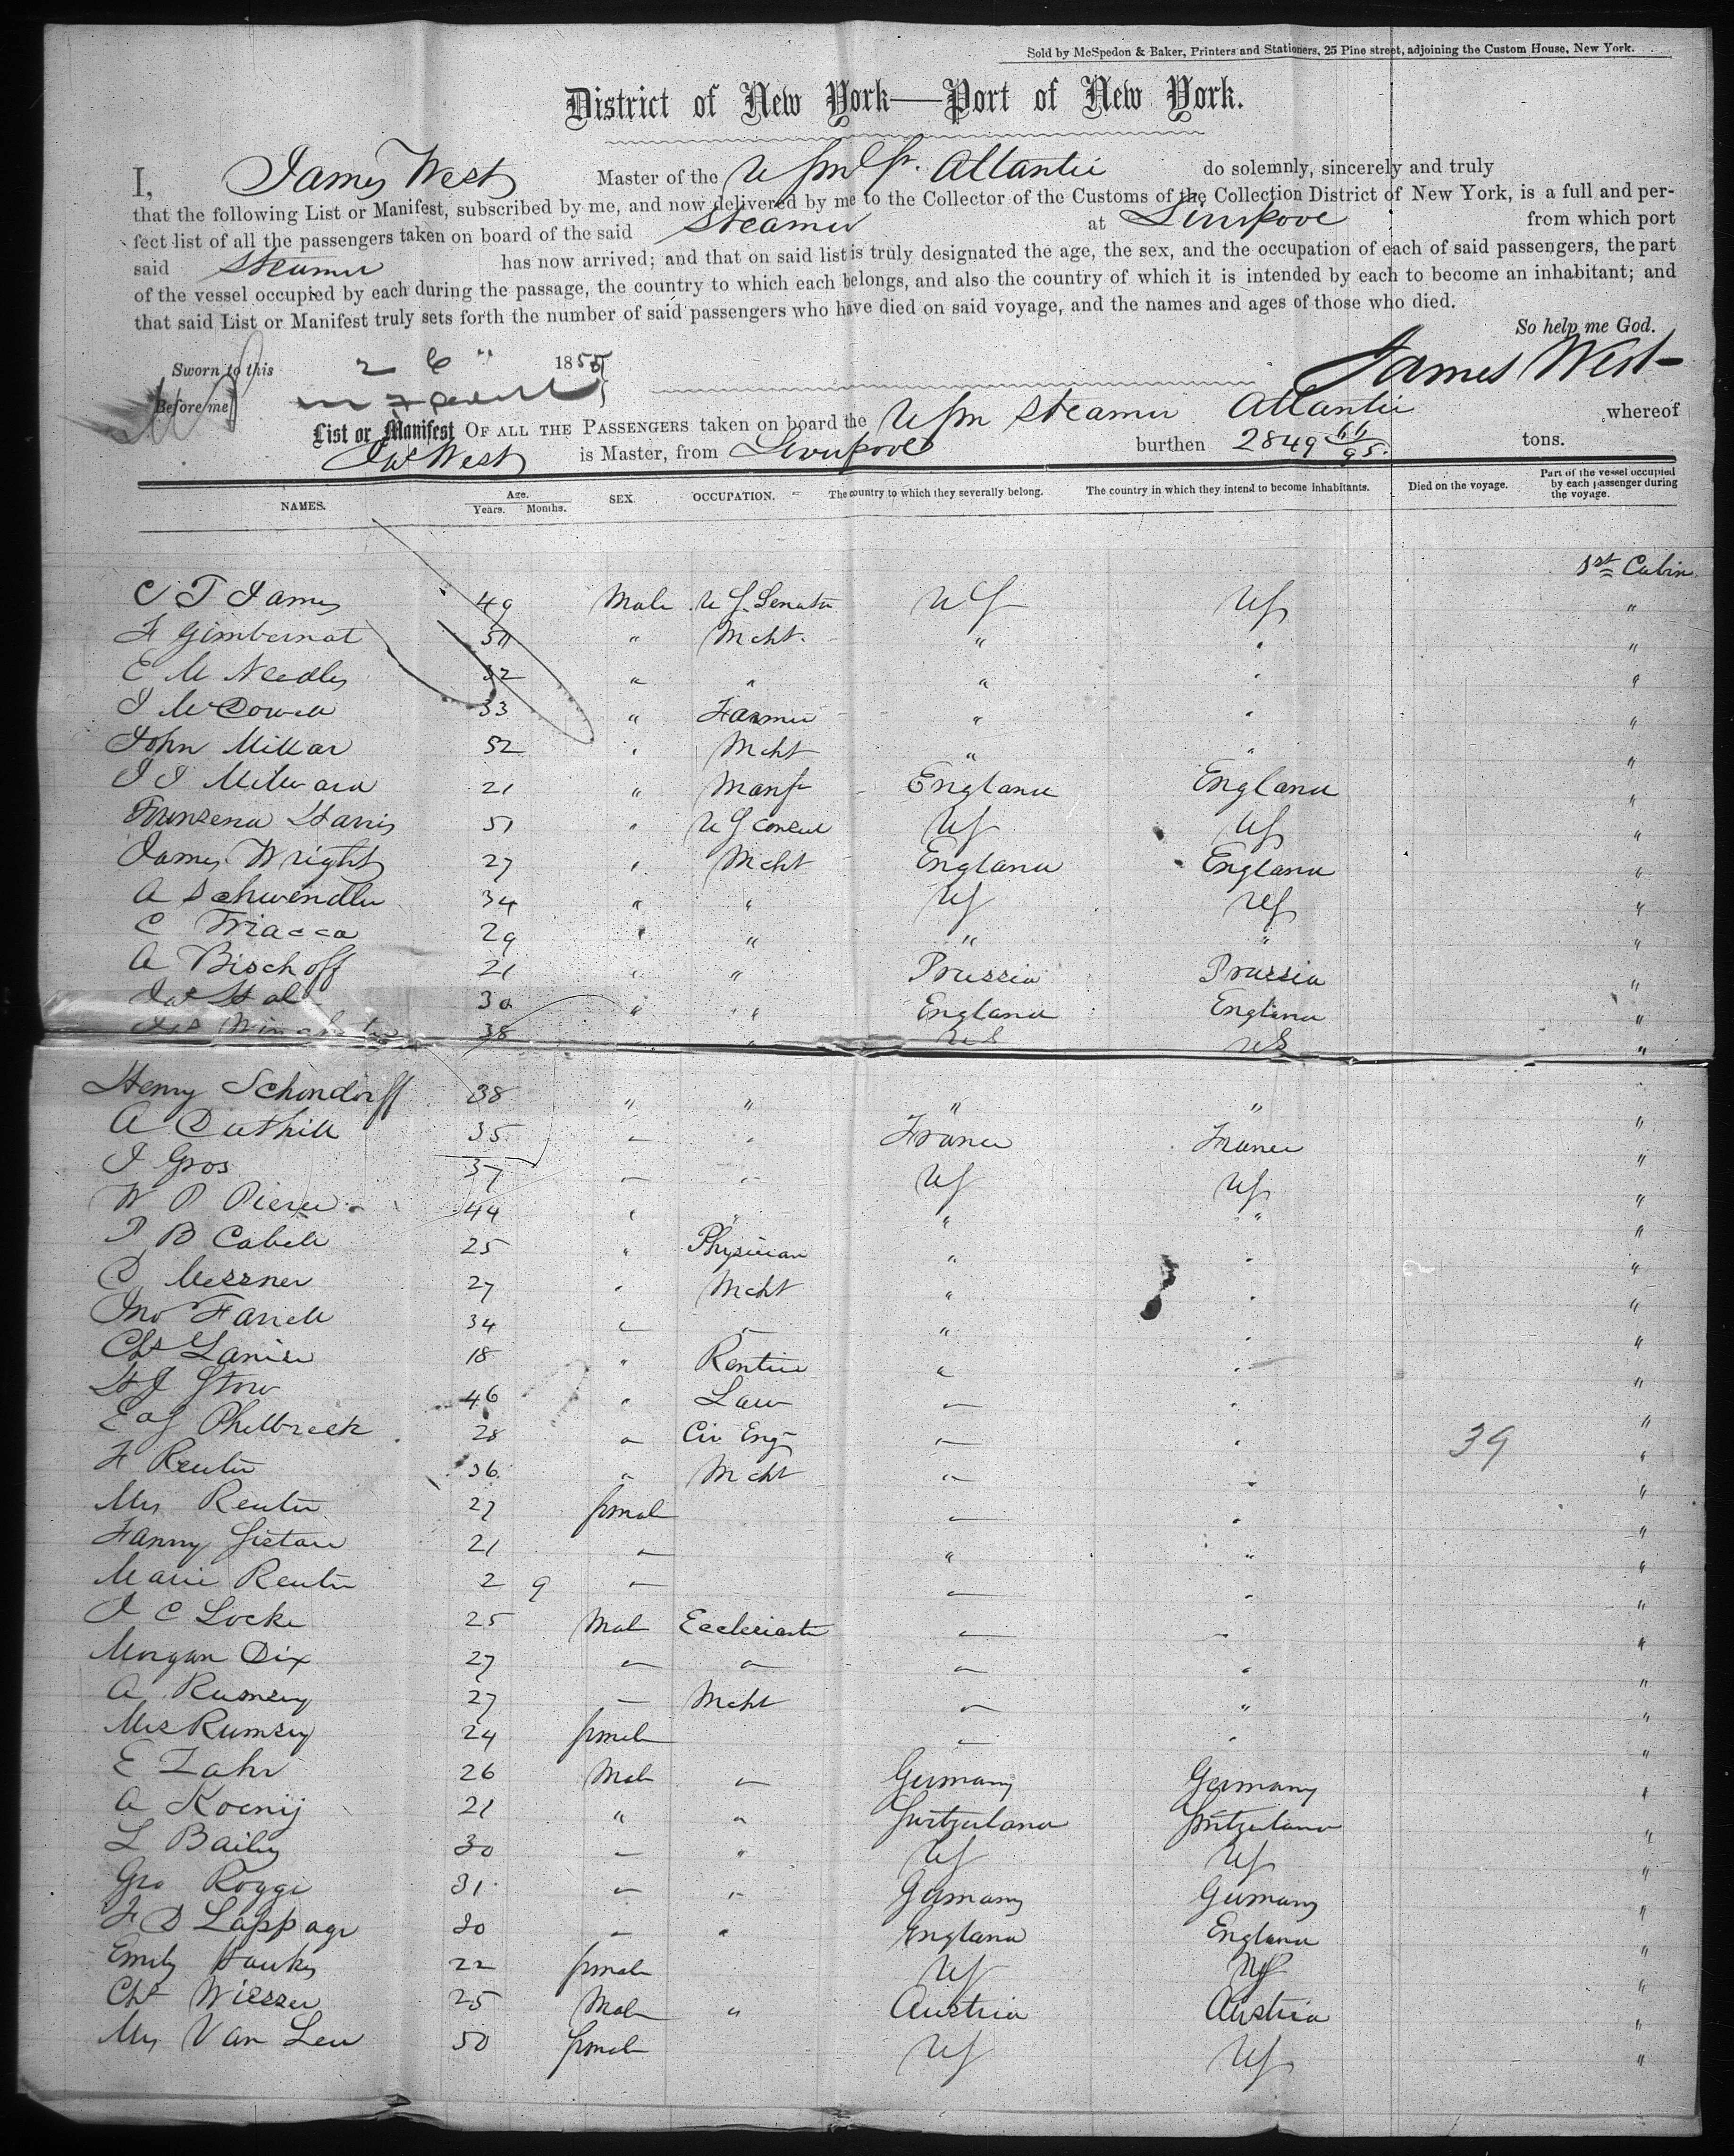 Sold by McSpedon & Baker, Printers and Stationers, 25 Pine street, adjoining the Custom House, New York.
District of New York—Port of New York.
I, James West Master of the Atlantic do solemnly, sincerely and truly
that the following List or Manifest, subscribed by me, and now delivered by me to the Collector of the Customs of the Collection District of New York, is a full and per-
fect list of all the passengers taken on board of the said Steamer at Liverpool from which port
said Steamer has now arrived; and that on said list is truly designated the age, the sex, and the occupation of each of said passengers, the part
of the vessel occupied by each during the passage, the country to which each belongs, and also the country of which it is intended by each to become an inhabitant; and
that said List or Manifest truly sets forth the number of said passengers who have died on said voyage, and the names and ages of those who died.
So help me God.
Sworn to this 26 " 1855 James West
Before me
List or Manifest OF ALL THE PASSENGERS taken on board the Steamer Atlantic whereof
Jas West is Master, from Liverpool burthen 2849 66/95 tons.
NAMES. Age. Years. Months. SEX. OCCUPATION. The country to which they severally belong. The country in which they intend to become inhabitants. Died on the voyage. Part of the vessel occupied by each passenger during the voyage.
1st Cabin
C T James 49 Male US Senator US US "
F Gimbernat 50 " Mcht. " " "
E M Needles 32 " " " " "
J McDowell 33 " Farmer " " "
John Millar 52 " Mcht " " "
J J Milward 21 " Manfr England England "
Harris 51 " US Consul US US "
James Wright 27 " Mcht England England "
A Schwendler 34 " " US US "
C Friacca 29 " " " " "
A Bischoff 21 " " Prussia Prussia "
Jas 30 " " England England "
38 " US US "
Henry Schondorff 38 " " " " "
A Duthill 35 " " France France "
J Gros 37 " " US US "
W P Pierce 44 " " " " "
P B Cabell 25 " Physician " " "
D Messner 27 " Mcht " " "
Jno Farrell 34 " " " " "
Chs Lanier 18 " Rentier " " "
H J Stow 46 " Law " " "
E S Philbrick 28 " Civ Eng " " 39 "
F Reuter 36 " Mcht " " "
Mrs Reuter 27 female " " "
Fanny 21 " " " "
Marie Reuter 2 9 " " " "
J C Locke 25 Male " " "
Morgan Dix 27 " " " " "
A Rumsey 27 " Mcht " " "
Mrs Rumsey 24 female " " "
E Zahr 26 Male " Germany Germany "
A Koenig 21 " " Switzerland Switzerland "
L Bailey 30 " " US US "
Geo Rogge 31 " " Germany Germany "
F D Lappage 30 " " England England "
Emily Hawks 22 female US US "
Chs Wiesser 25 Male " Austria Austria "
Mrs Van Leu 50 female US US "